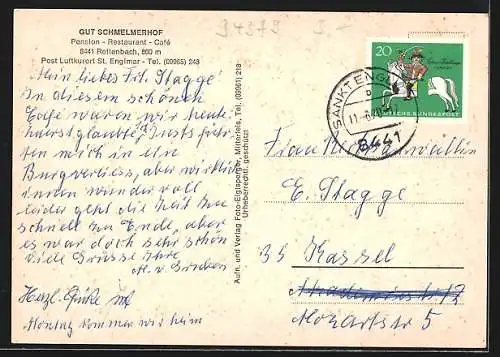 34379 3.-
GUT SCHMELMERHOF
Pension - Restaurant - Café
8441 Rettenbach, 800 m
Post Luftkurort St. Englmar - Tel. (09965) 248
Mein liebes Frl. Stagge
In diesem schönen
waren wir heute
ten mich in eine
Burgverliess, aber wirklich
innen wundervoll
leider geht die Zeit so
schnell zu Ende, aber
es war doch sehr schön
viele Grüsse Ihre
M. v.
Herzl. Grüße
Montag kommen wir heim
Aufn. und Verlag Foto-Eiglsperger, Mitterfels, Tel. (09961) 218
Urheberrechtl. geschützt
20
DEUTSCHE BUNDESPOST
SANKT ENGLMAR
8441
Frau Rechtsanwältin
E. Stagge
35 Kassel
Mozartstr 5